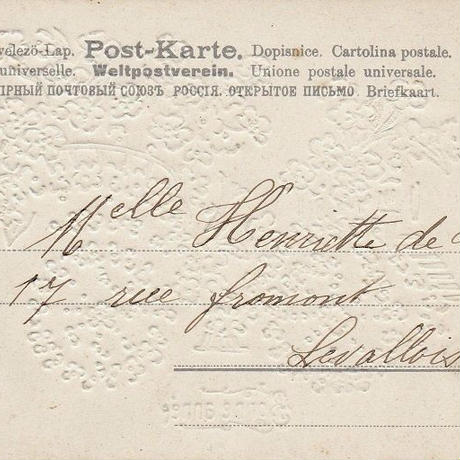 velezö-Lap. Post-Karte. Dopisnice. Cartolina postale.
universelle. Weltpostverein. Unione postale universale.
ІРНЫЙ ПОЧТОВЫЙ СОЮЗЪ РОССІЯ. ОТКРЫТОЕ ПИСЬМО Briefkaart.
Melle Henriette de
17 rue Fromont
Levallois
Bonne année